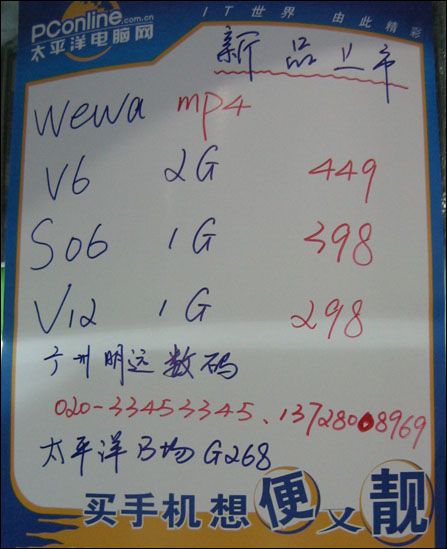 PConline.com.cn
太平洋电脑网
IT世界 由此精彩
新品上市
wewa mp4
V6 2G 449
S06 1G 398
V12 1G 298
广州明远数码
020-33453345、13728008969
太平洋B场G268
买手机想便又靓